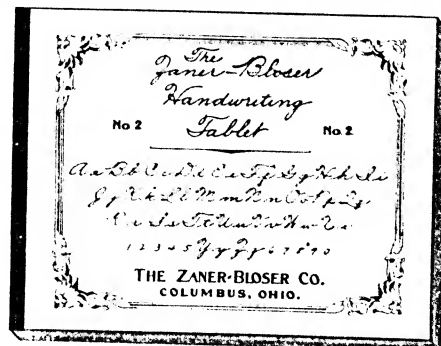 The
Zaner-Bloser
Handwriting
No. 2 Tablet No. 2
Aa Bb Cc Dd Ee Ff Gg Hh Ii
Jj Kk Ll Mm Nn Oo Pp Qq
Rr Ss Tt Uu Vv Ww Xx
1 2 3 4 5 Yy Zz 6 7 8 9 0
THE ZANER-BLOSER CO.
COLUMBUS, OHIO.